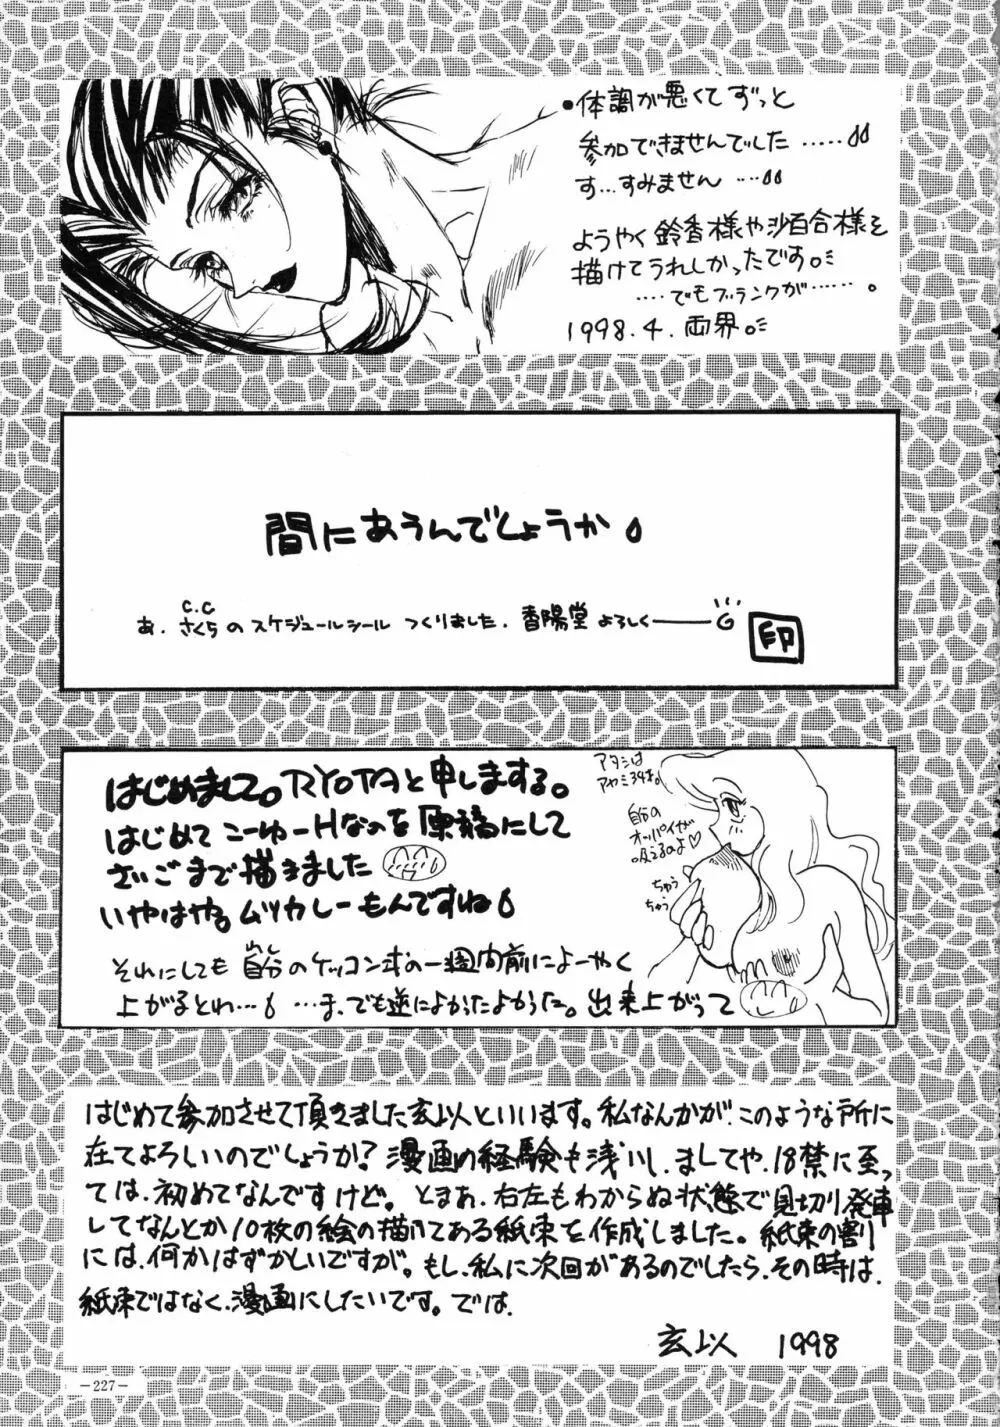 ●体調が悪くてずっと
参加できませんでした.....
す...すみません...
ようやく鈴香様や沙百合様を
描けてうれしかったです。
....でもブランクが......。
1998.4. 両界。
間にあうんでしょうか
C.C
あ.さくらのスケジュールシール つくりました. 香陽堂よろしくーG
印
はじめまして。RYOTAと申しまする。
はじめてこーゆーHなのを原稿にして
さいごまで描きました
いやはや。ムツカシーもんですね
それにしても自分のケッコン式の一週間前によーやく
上がるとわ... ...ま、でも逆によかったよかった。出来上がって
アタシは
アヤミ34才。
自分の
オッパイが
吸えるのよ♡
ちゅう
ちゅう
はじめて参加させて頂きました玄以といいます。私なんかが、このような所に
在てよろしいのでしょうか?漫画の経験も浅いし、ましてや、18禁に至っ
ては、初めてなんですけど。とまあ、右左もわからぬ状態で見切り発車
してなんとか10枚の絵の描いてある紙束を作成しました。紙束の割り
には、何かはずかしいですが。もし、私に次回があるのでしたら、その時は、
紙束ではなく、漫画にしたいです。では、
玄以 1998
-227-